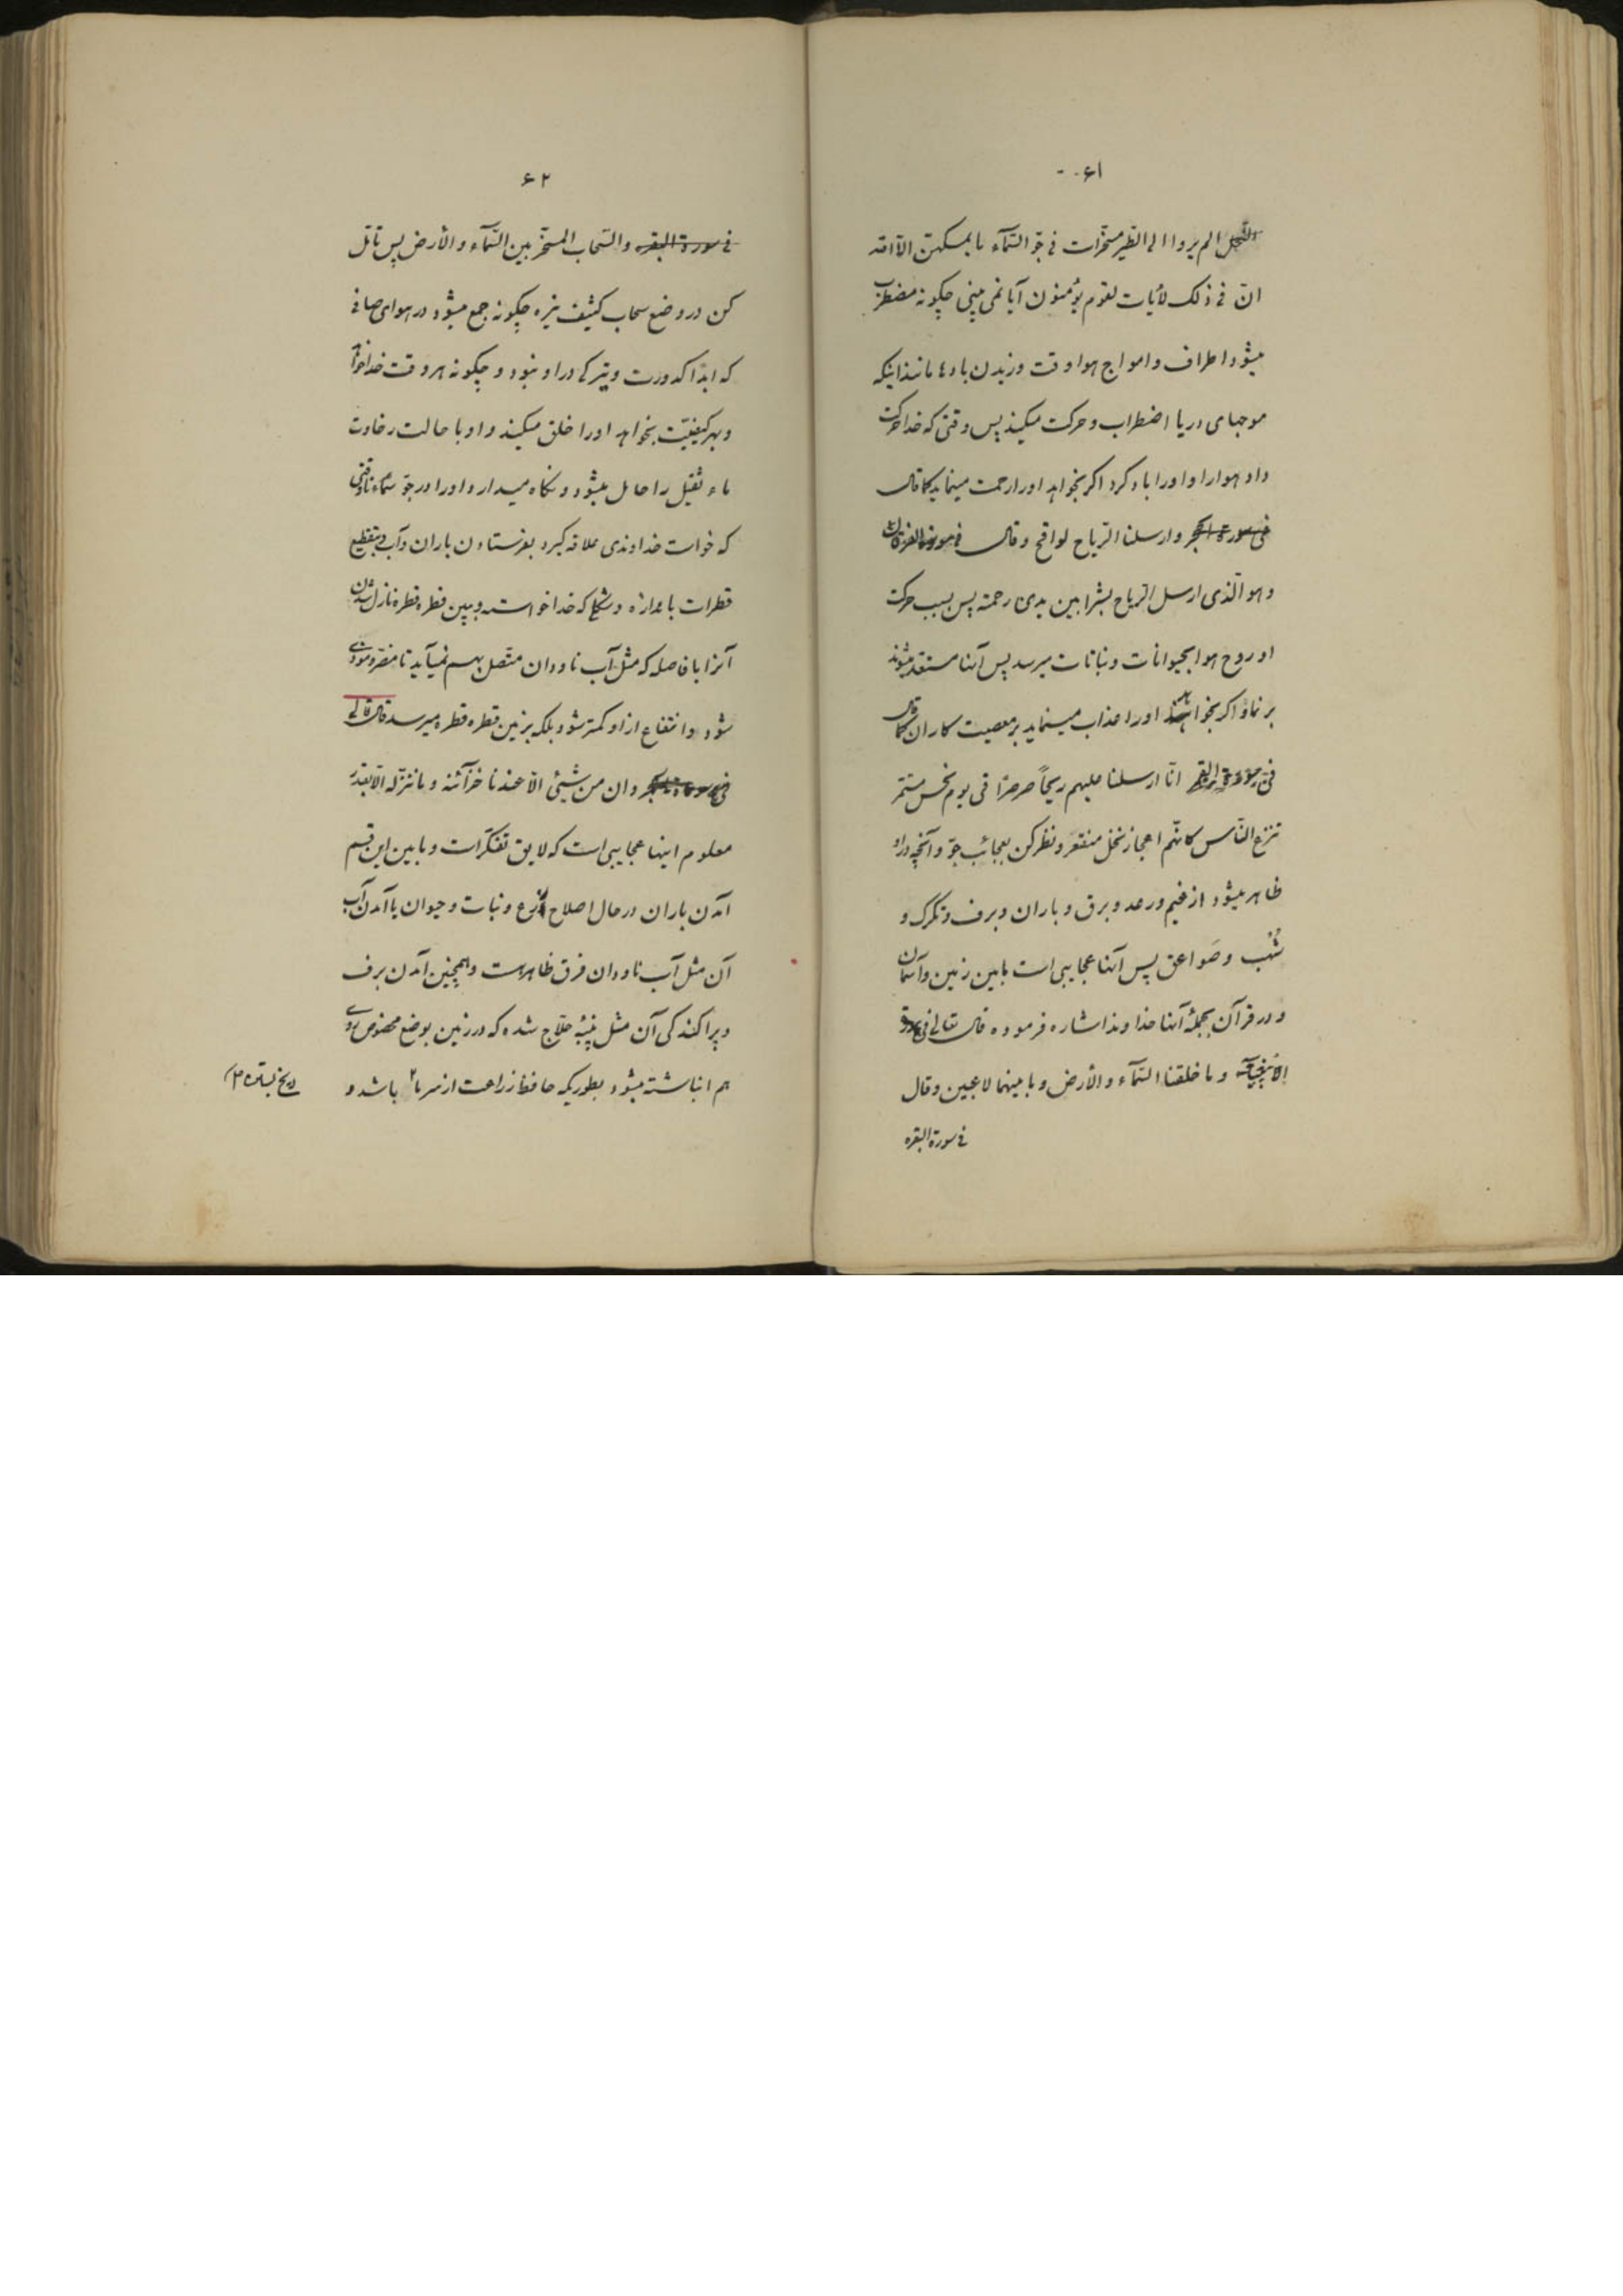 ۶۱
النحل الم یروا الی الطیر مسخّرات فی جوّ السّمآء ما یمسکهنّ الّا الله
انّ فی ذلک لأیات لقوم یؤمنون آیا نمی بینی چکونه مضطرب
میشود اطراف و امواج هوا وقت وزیدن بادها مانند اینکه
موجهای دریا اضطراب و حرکت میکنند پس وقتی که خدا حرکت
داد هوا را و او را باد کرد اکر بخواهد او را رحمت مینماید کما قال
فی سورة الحجر و ارسلنا الریاح لواقح و قال فی سورة الفرقان
و هو الّذی ارسل الریاح بشرا بین یدی رحمته پس بسبب حرکت
او روح هوا بحیوانات و نباتات میرسد پس آنها مستعد میشوند
بر نماو اکر بخواهد او را عذاب مینماید بر معصیت کاران کما قال
فی سورة القمر انّا ارسلنا علیهم ریحاً صرصرًا فی یوم نحس مستمر
تنزع النّاس کانّهم اعجاز نخل منقعر و نظر کن بعجائب جوّ و آنچه در او
ظاهر میشود از غیم و رعد و برق و باران و برف و تکرک و
شُهُب و صَواعق پس آنها عجایبی است مابین زمین و آسمان
و در قرآن بجملهٔ آنها خداوند اشاره فرموده قال تعالی فی سورة
الانبیآء و ما خلقنا السّمآء و الأرض و ما بینهما لاعبین و قال
فی سورة البقره
۶۲
فی سورة البقره و السّحاب المسخّر بین السّمآء و الأرض پس تأمّل
کن در وضع سحاب کثیف تیره چکونه جمع میشود در هوای صافی
که ابدًا کدورت و تیرکی در او نبود و چکونه هر وقت خدا خواهد
و بهر کیفیّت بخواهد او را خلق میکند و او با حالت رخاوت
ماء ثقیل را حامل میشود و نکاه میدارد او را در جوّ سماء تا وقتی
که خواست خداوندی علاقه کیرد بفرستادن باران و آب و بتقطیع
قطرات باندازه و شکلی که خدا خواسته و ببین قطره قطره نازل شدن
آنرا با فاصله که مثل آب ناودان متّصل بهم نمیآید تا مضرّ و موذی
شود و انتفاع از او کمتر شود بلکه بزمین قطره قطره میرسد قال تعالی
فی سورة الحجر و ان من شیئی الّا عندنا خزآئنه و ما ننزّله الّا بقدر
معلوم اینها عجایبی است که لایق تفکّرات و مابین این قسم
آمدن باران در حال اصلاح زرع و نبات و حیوان با آمدن آب
آن مثل آب ناودان فرق ظاهر است و همچنین آمدن برف
و پراکندکی آن مثل پنبهٔ حلّاج شده که در زمین بوضع مخصوص روی
هم انباشته میشود بطوریکه حافظ زراعت از سرما باشد و